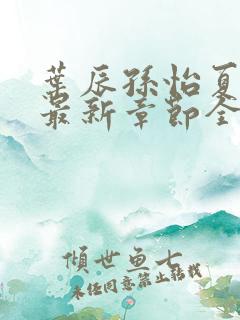 葉辰孫怡夏
最新章節全
傾世魚七
未经同意禁止转载